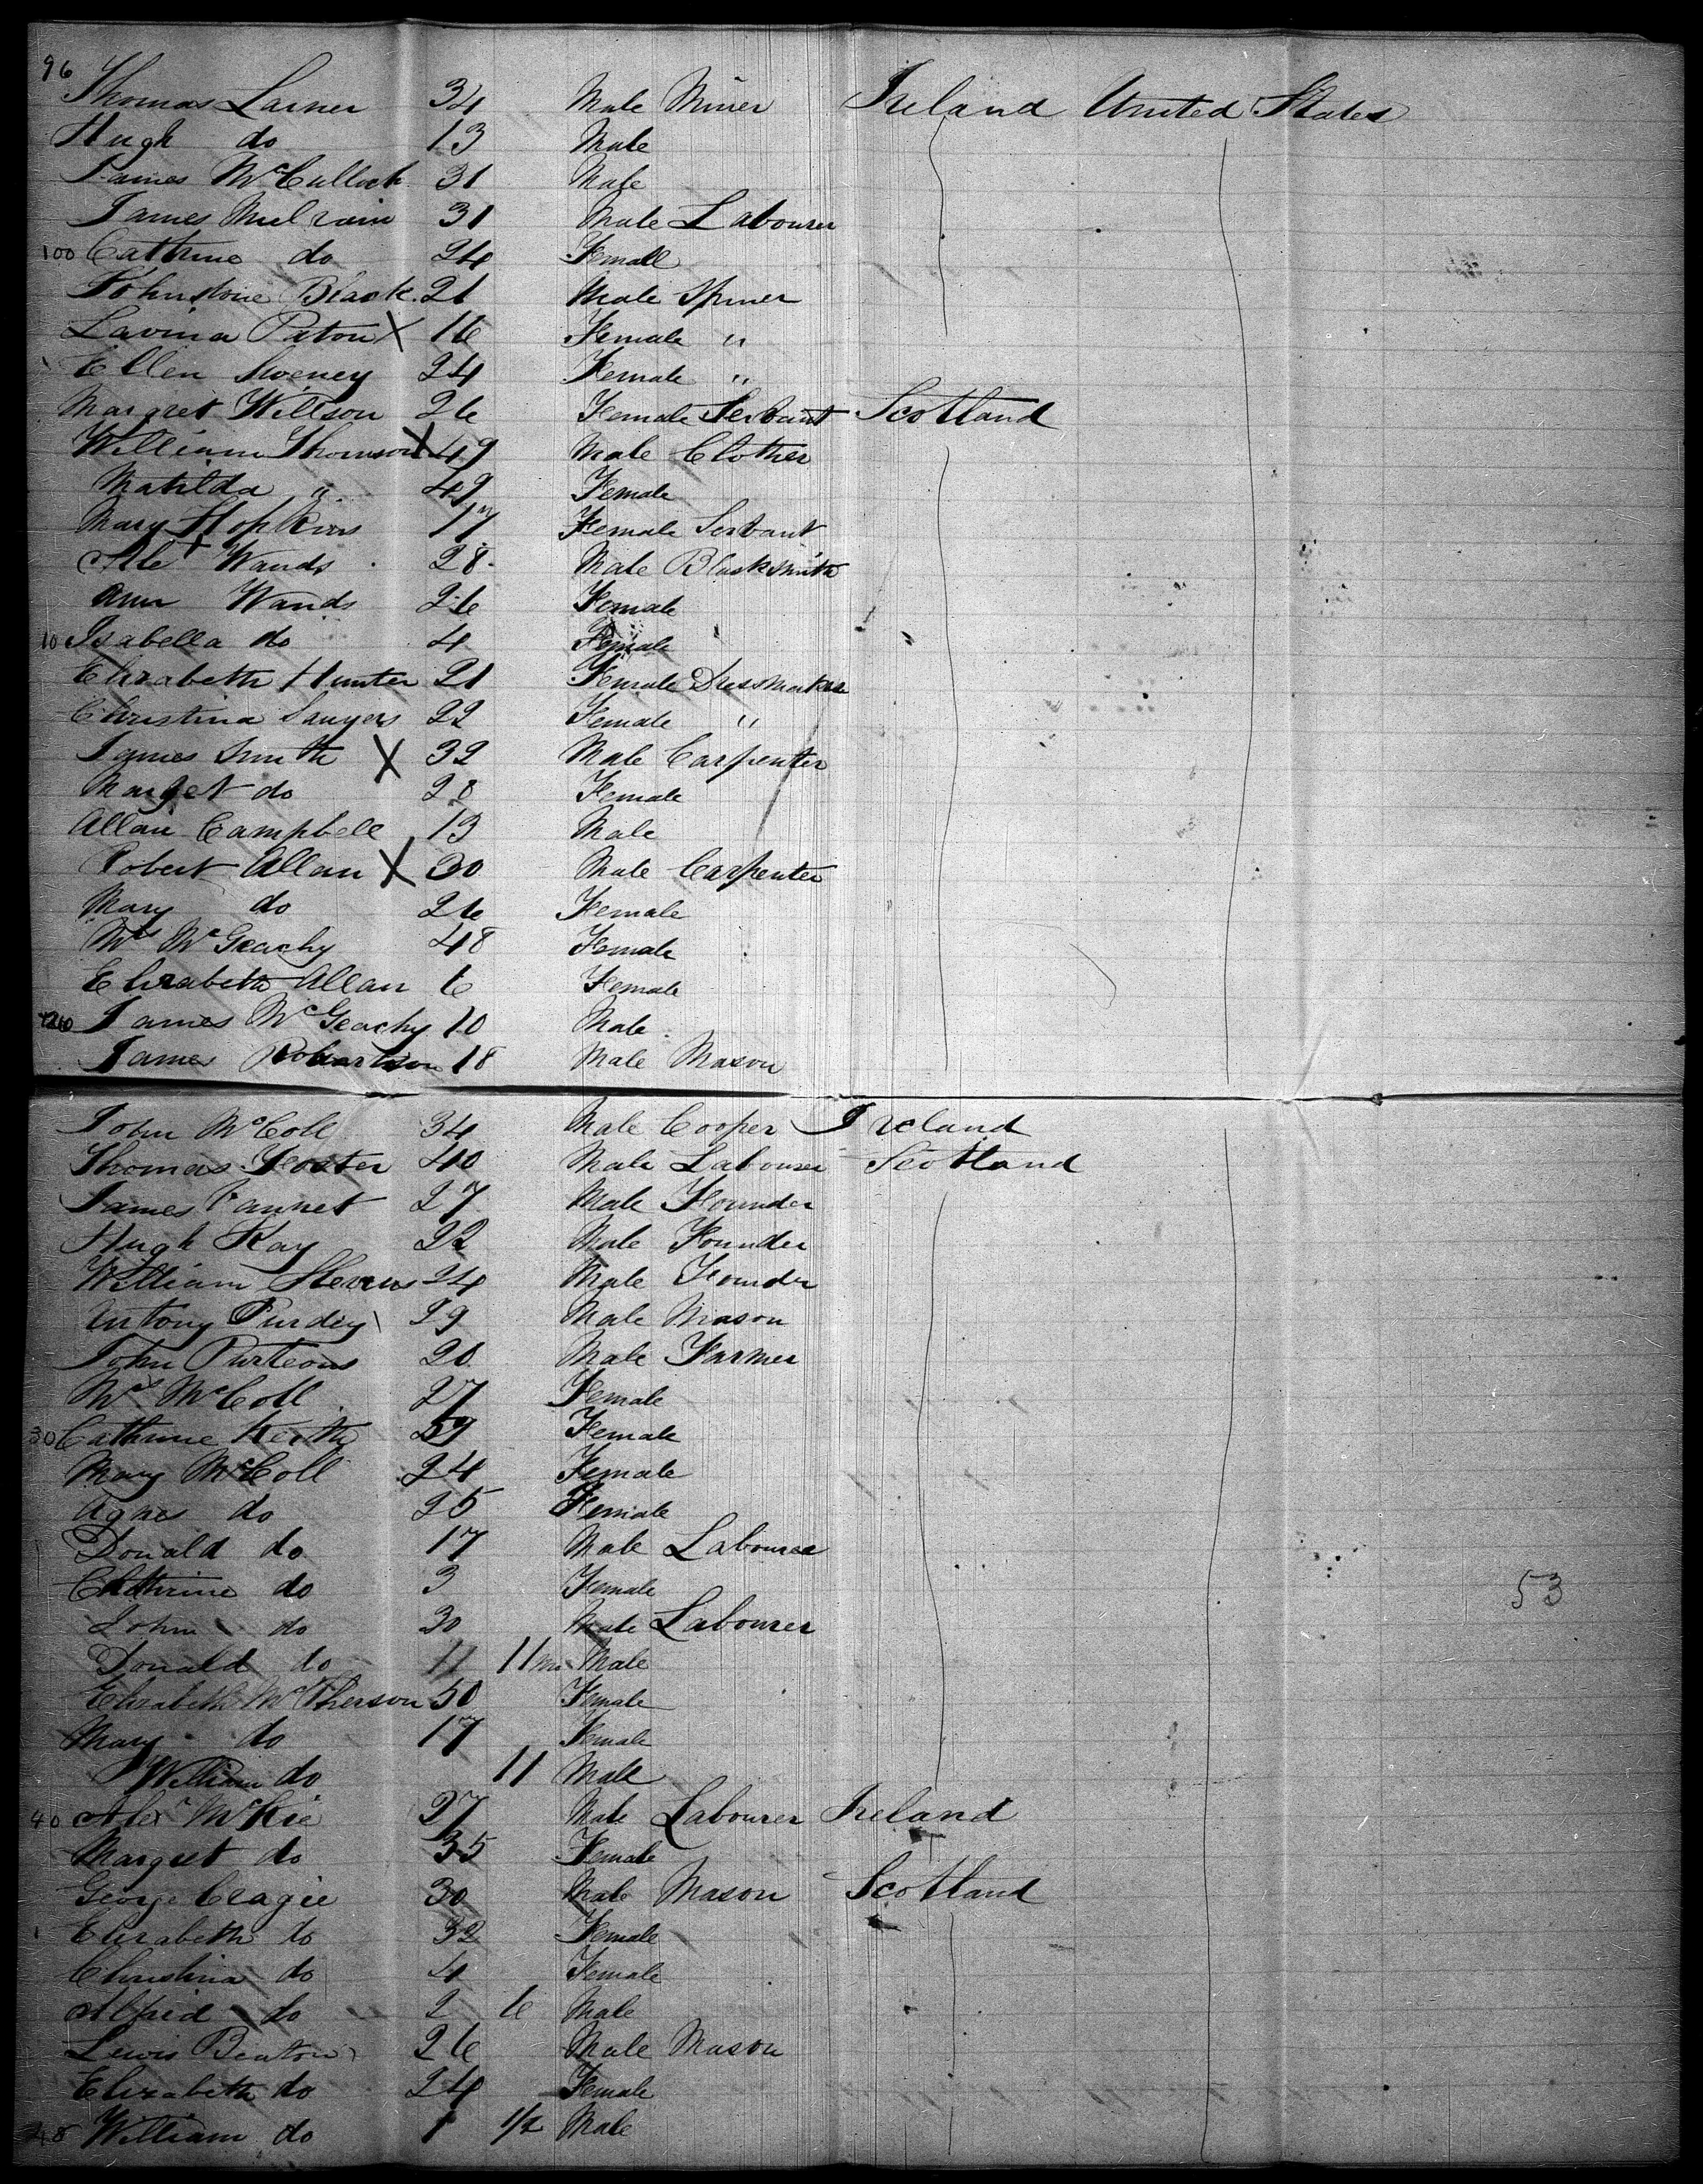 96 Thomas Larner 34 Male Miner Ireland United States
Hugh do 13 Male
James McCulloch 31 Male
James Mulvain 31 Male Labourer
100 Cathrine do 24 Female
Johnstone Black 21 Male Spiner
Lavina Paton X 16 Female "
Ellen Sweney 24 Female "
Margret Willson 26 Female Servant Scotland
William Thomson X 49 Male Clother
Matilda " 49 Female
Mary Hopkins 17 Female Servant
Alex Wands 28 Male Blacksmith
Ann Wands 26 Female
10 Isabella do 4 Female
Elizabeth Hunter 21 Female Dressmaker
Christina Sauyers 22 Female "
James Smith X 32 Male Carpenter
Marget do 28 Female
Allan Campbell 13 Male
Robert Allan X 30 Male Carpenter
Mary do 26 Female
Mrs McGeachy 48 Female
Elizabeth Allan 6 Female
120 James McGeachy 10 Male
James Robertson 18 Male Mason
John McColl 34 Male Cooper Ireland
Thomas Foster 40 Male Labourer Scotland
James Pannet 27 Male Founder
Hugh Kay 22 Male Founder
William Stevens 24 Male Founder
Antony Purdey 29 Male Mason
John Purteous 20 Male Farmer
Mrs McColl 27 Female
30 Cathrine Keith 59 Female
Mary McColl 24 Female
Agnes do 25 Female
Donald do 17 Male Labourer
Cathrine do 3 Female
53
John do 30 Male Labourer
Donald do 11 11 m Male
Elizabeth McPherson 50 Female
Mary do 17 Female
William do 11 Male
40 Alexr McKie 27 Male Labourer Ireland
Margret do 35 Female
George Cragie 30 Male Mason Scotland
Elizabeth do 32 Female
Christina do 4 Female
Alfrid do 2 6 Male
Lewis Beaton 26 Male Mason
Elizabeth do 24 Female
48 William do 1 1/2 Male